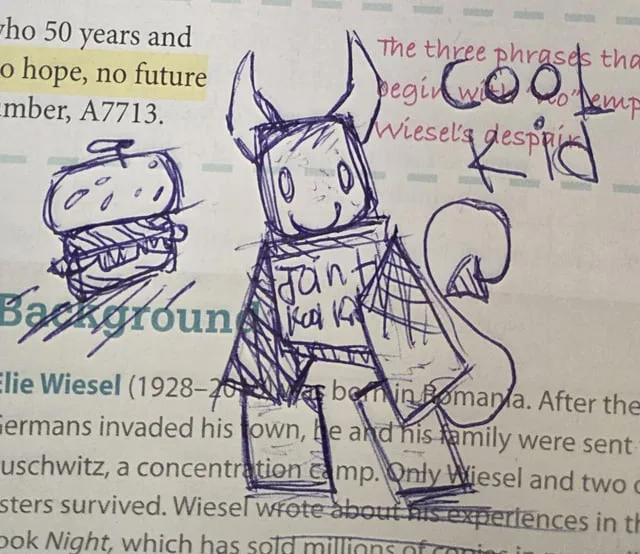 who 50 years and
o hope, no future
mber, A7713.
The three phrases tha
begin with "no" emp
Wiesel's despair
cooL
Kid
Join
Background
Elie Wiesel (1928–20 was born in Romania. After the
Germans invaded his town, he and his family were sent
uschwitz, a concentration camp. Only Wiesel and two o
sters survived. Wiesel wrote about his experiences in th
ook Night, which has sold millions of copies in